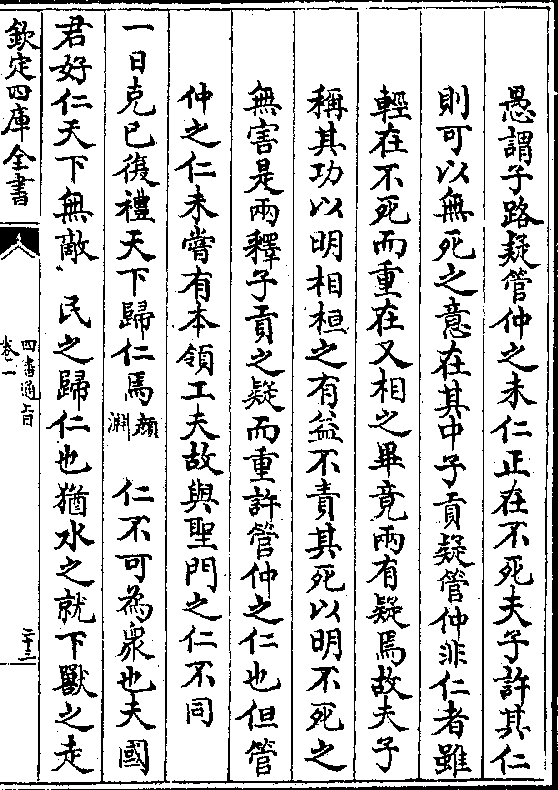 愚謂子路疑管仲之未仁正在不死夫子許其仁
則可以無死之意在其中子貢疑管仲非仁者雖
輕在不死而重在又相之畢竟兩有疑焉故夫子
稱其功以明相桓之有益不責其死以明不死之
無害是兩釋子貢之疑而重許管仲之仁也但管
仲之仁未嘗有本領工夫故與聖門之仁不同
一日克己復禮天下歸仁焉顔淵 仁不可為衆也夫國
君好仁天下無敵 民之歸仁也猶水之就下獸之走
欽定四庫全書
四書通旨
卷一
二十三